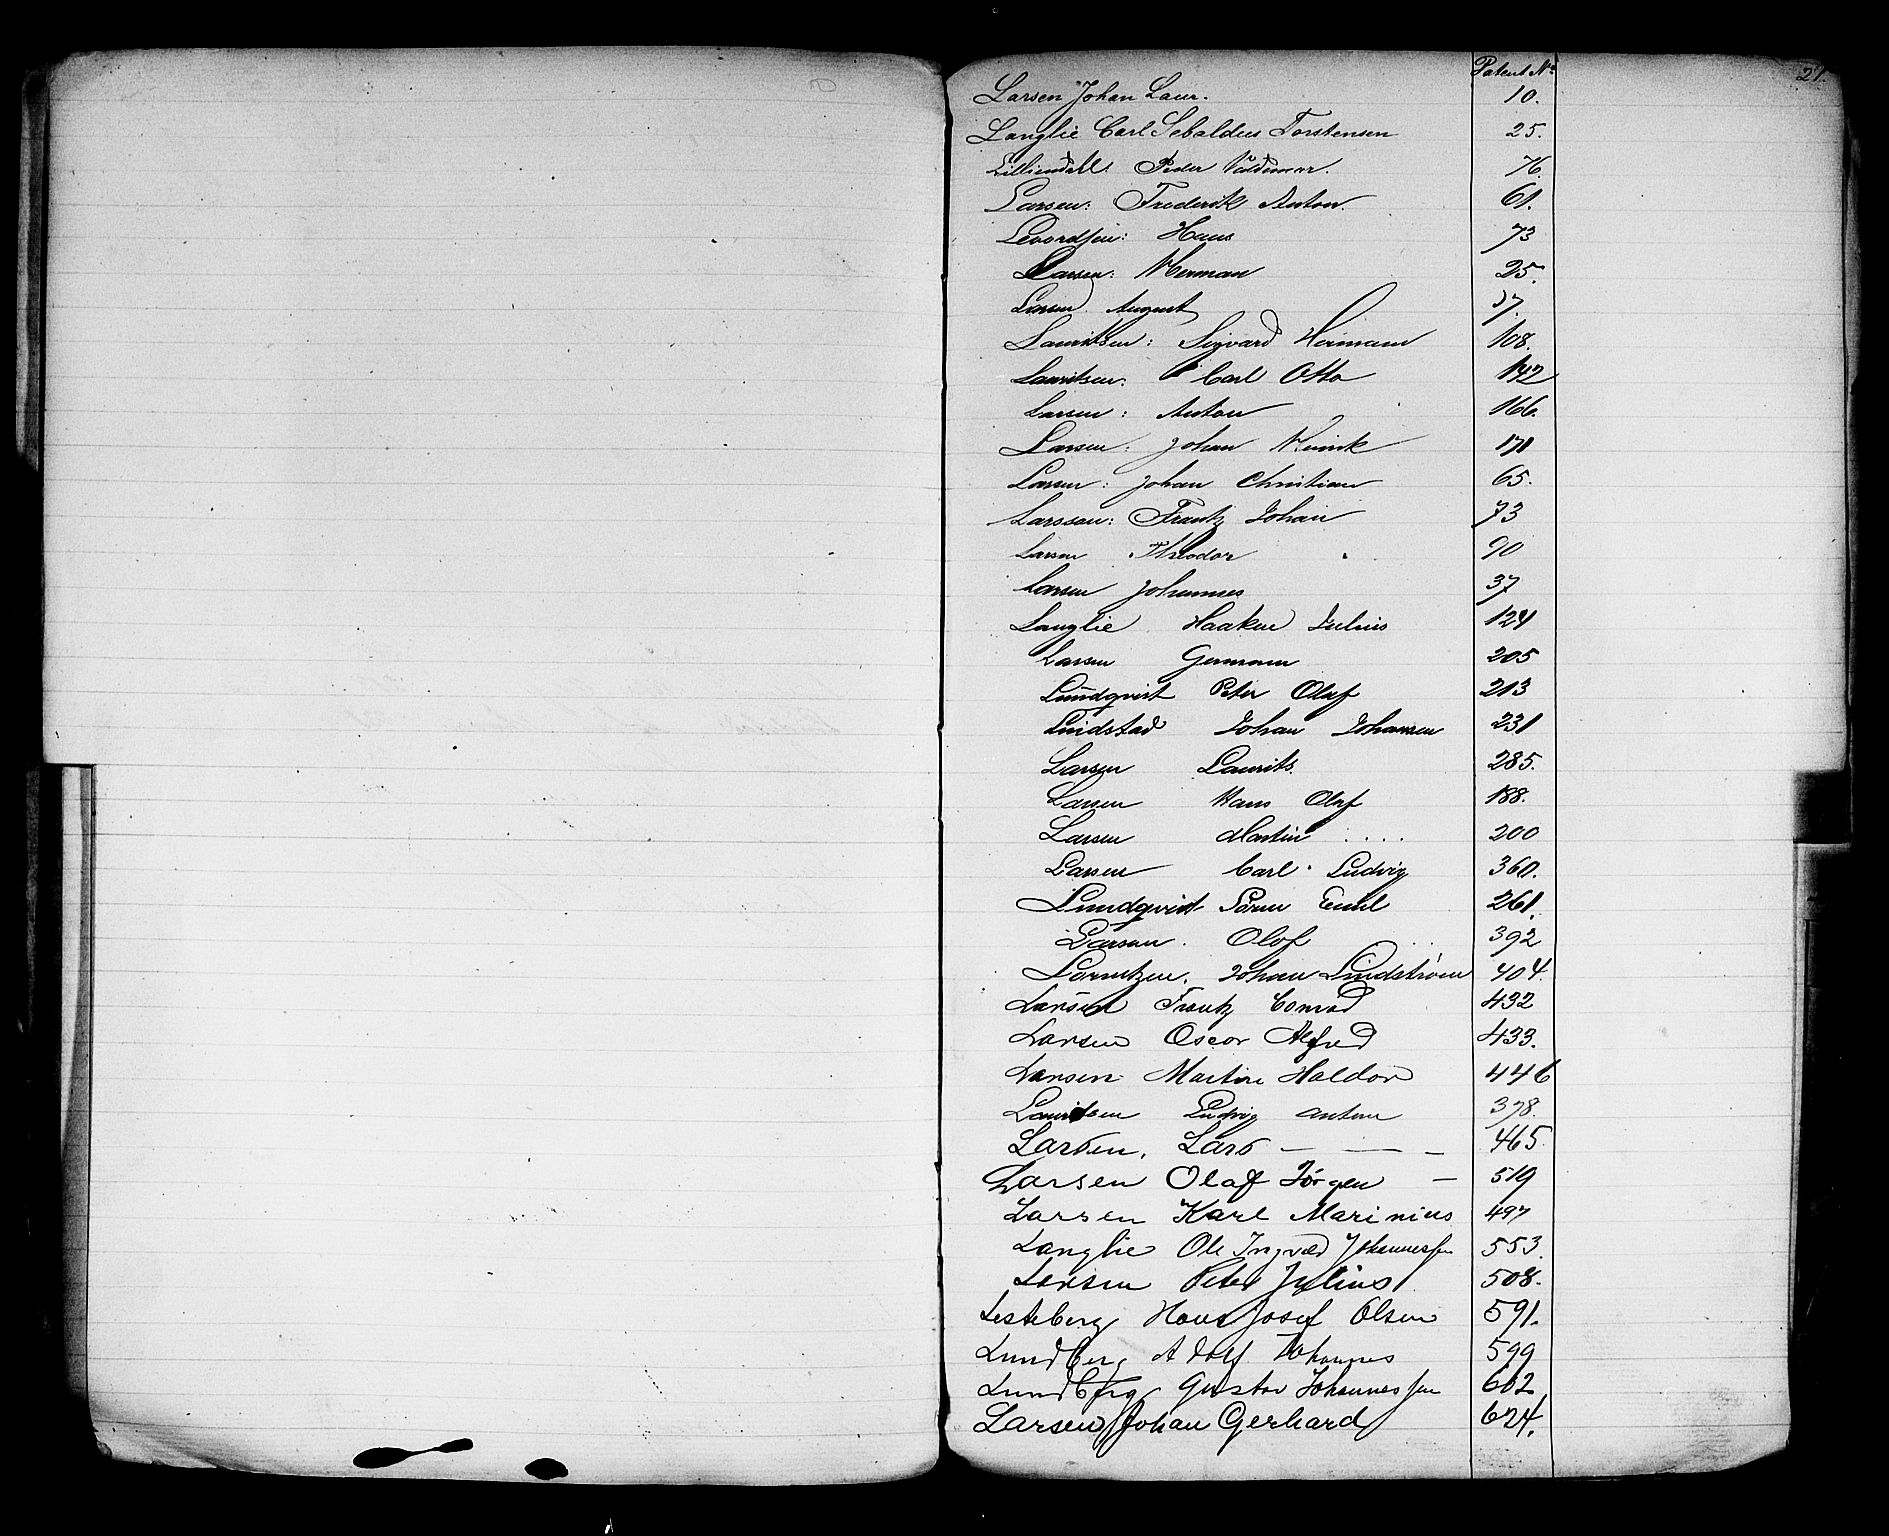 Patent No
27.
Larsen Johan Laur. 10.
Langlie Carl Sebaldus Torstensen 25.
Lilliendahl Peder Valdemar. 76.
Larsen: Frederik Anton. 61.
Levordsen: Hans 73
Larsen: Herman 25.
Larsen August 57.
Lauritsen: Sigvard Hermann 108.
Lauritsen: Carl Otto 142
Larsen: Anton 166.
Larsen: Johan Henrik 171
Larsen: Johan Christian 65.
Larsson: Frantz Johan 73
Larsen Theodor 90
Larsen Johannes 37
Langlie Haaken Julius 124
Larsen Germann 205
Lundqvist Peter Olaf 213
Lindstad Johan Johansen 231
Larsen Laurits. 285.
Larsen Hans Olaf 188.
Larsen Martin 200
Larsen Carl Ludvig 360.
Lundqvist Sören Emil 261.
Larsen. Olof 392
Lorentzen. Johan Lindstrøm 404.
Larsen Frantz Conrad 432
Larsen Oscar Alfred 433.
Larsen Martin Haldor 446
Lauritsen Ludvig Anton 378.
Larsen, Lars — — — 465.
Larsen Olaf Jörgen — 519
Larsen Karl Marinius 497
Langlie Ole Ingvald Johannessen 553.
Larsen Peter Julius 508.
Lesteberg Hans Josef Olsen 591.
Lundberg Adolf Johannes 599
Lundberg Gustav Johannessen 602
Larsen Johan Gerhard 624.